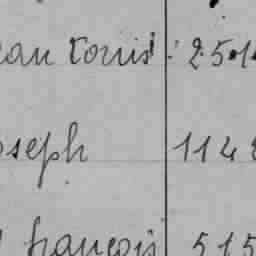 ean Louis : 25.1
oseph 114
françois 515